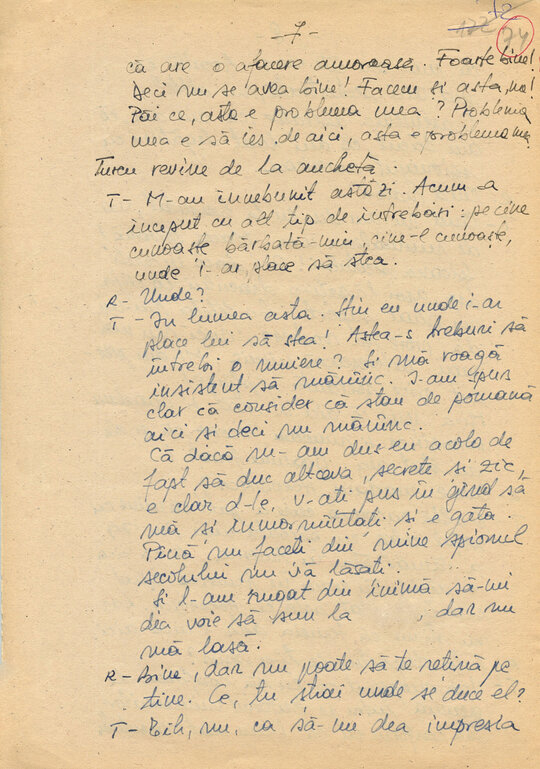 - 7 -
122
12
74
că are o afacere amoroasă. Foarte bine!
Deci nu se avea bine! Facem și asta, nu!
Păi ce, asta e problema mea? Problema
mea e să ies de aici, asta e problema mea
Turcu revine de la anchetă.
T - M-au înnebunit astăzi. Acum -a
început cu alt tip de întrebări: pe cine
cunoaște bărbată-miu, cine-l cunoaște,
unde i-ar place să stea.
R - Unde?
T - În lumea asta. Știu eu unde i-ar
place lui să stea! Astea-s treburi să
întrebi o muiere? Și mă roagă
insistent să mănînc. I-am spus
clar că consider că stau de pomană
aici și deci nu mănînc.
Că dacă m-am dus eu acolo de
fapt să duc altceva, secrete și zic,
e clar d-le, v-ați pus în gînd să
mă și înmormîntați și e gata.
Pînă nu faceți din mine spionul
secolului nu vă lăsați.
Și l-am rugat din inimă să-mi
dea voie să sun la , dar nu
mă lasă.
R - Bine, dar nu poate să te rețină pe
tine. Ce, tu știai unde se duce el?
T - Eih, nu, ca să-mi dea impresia